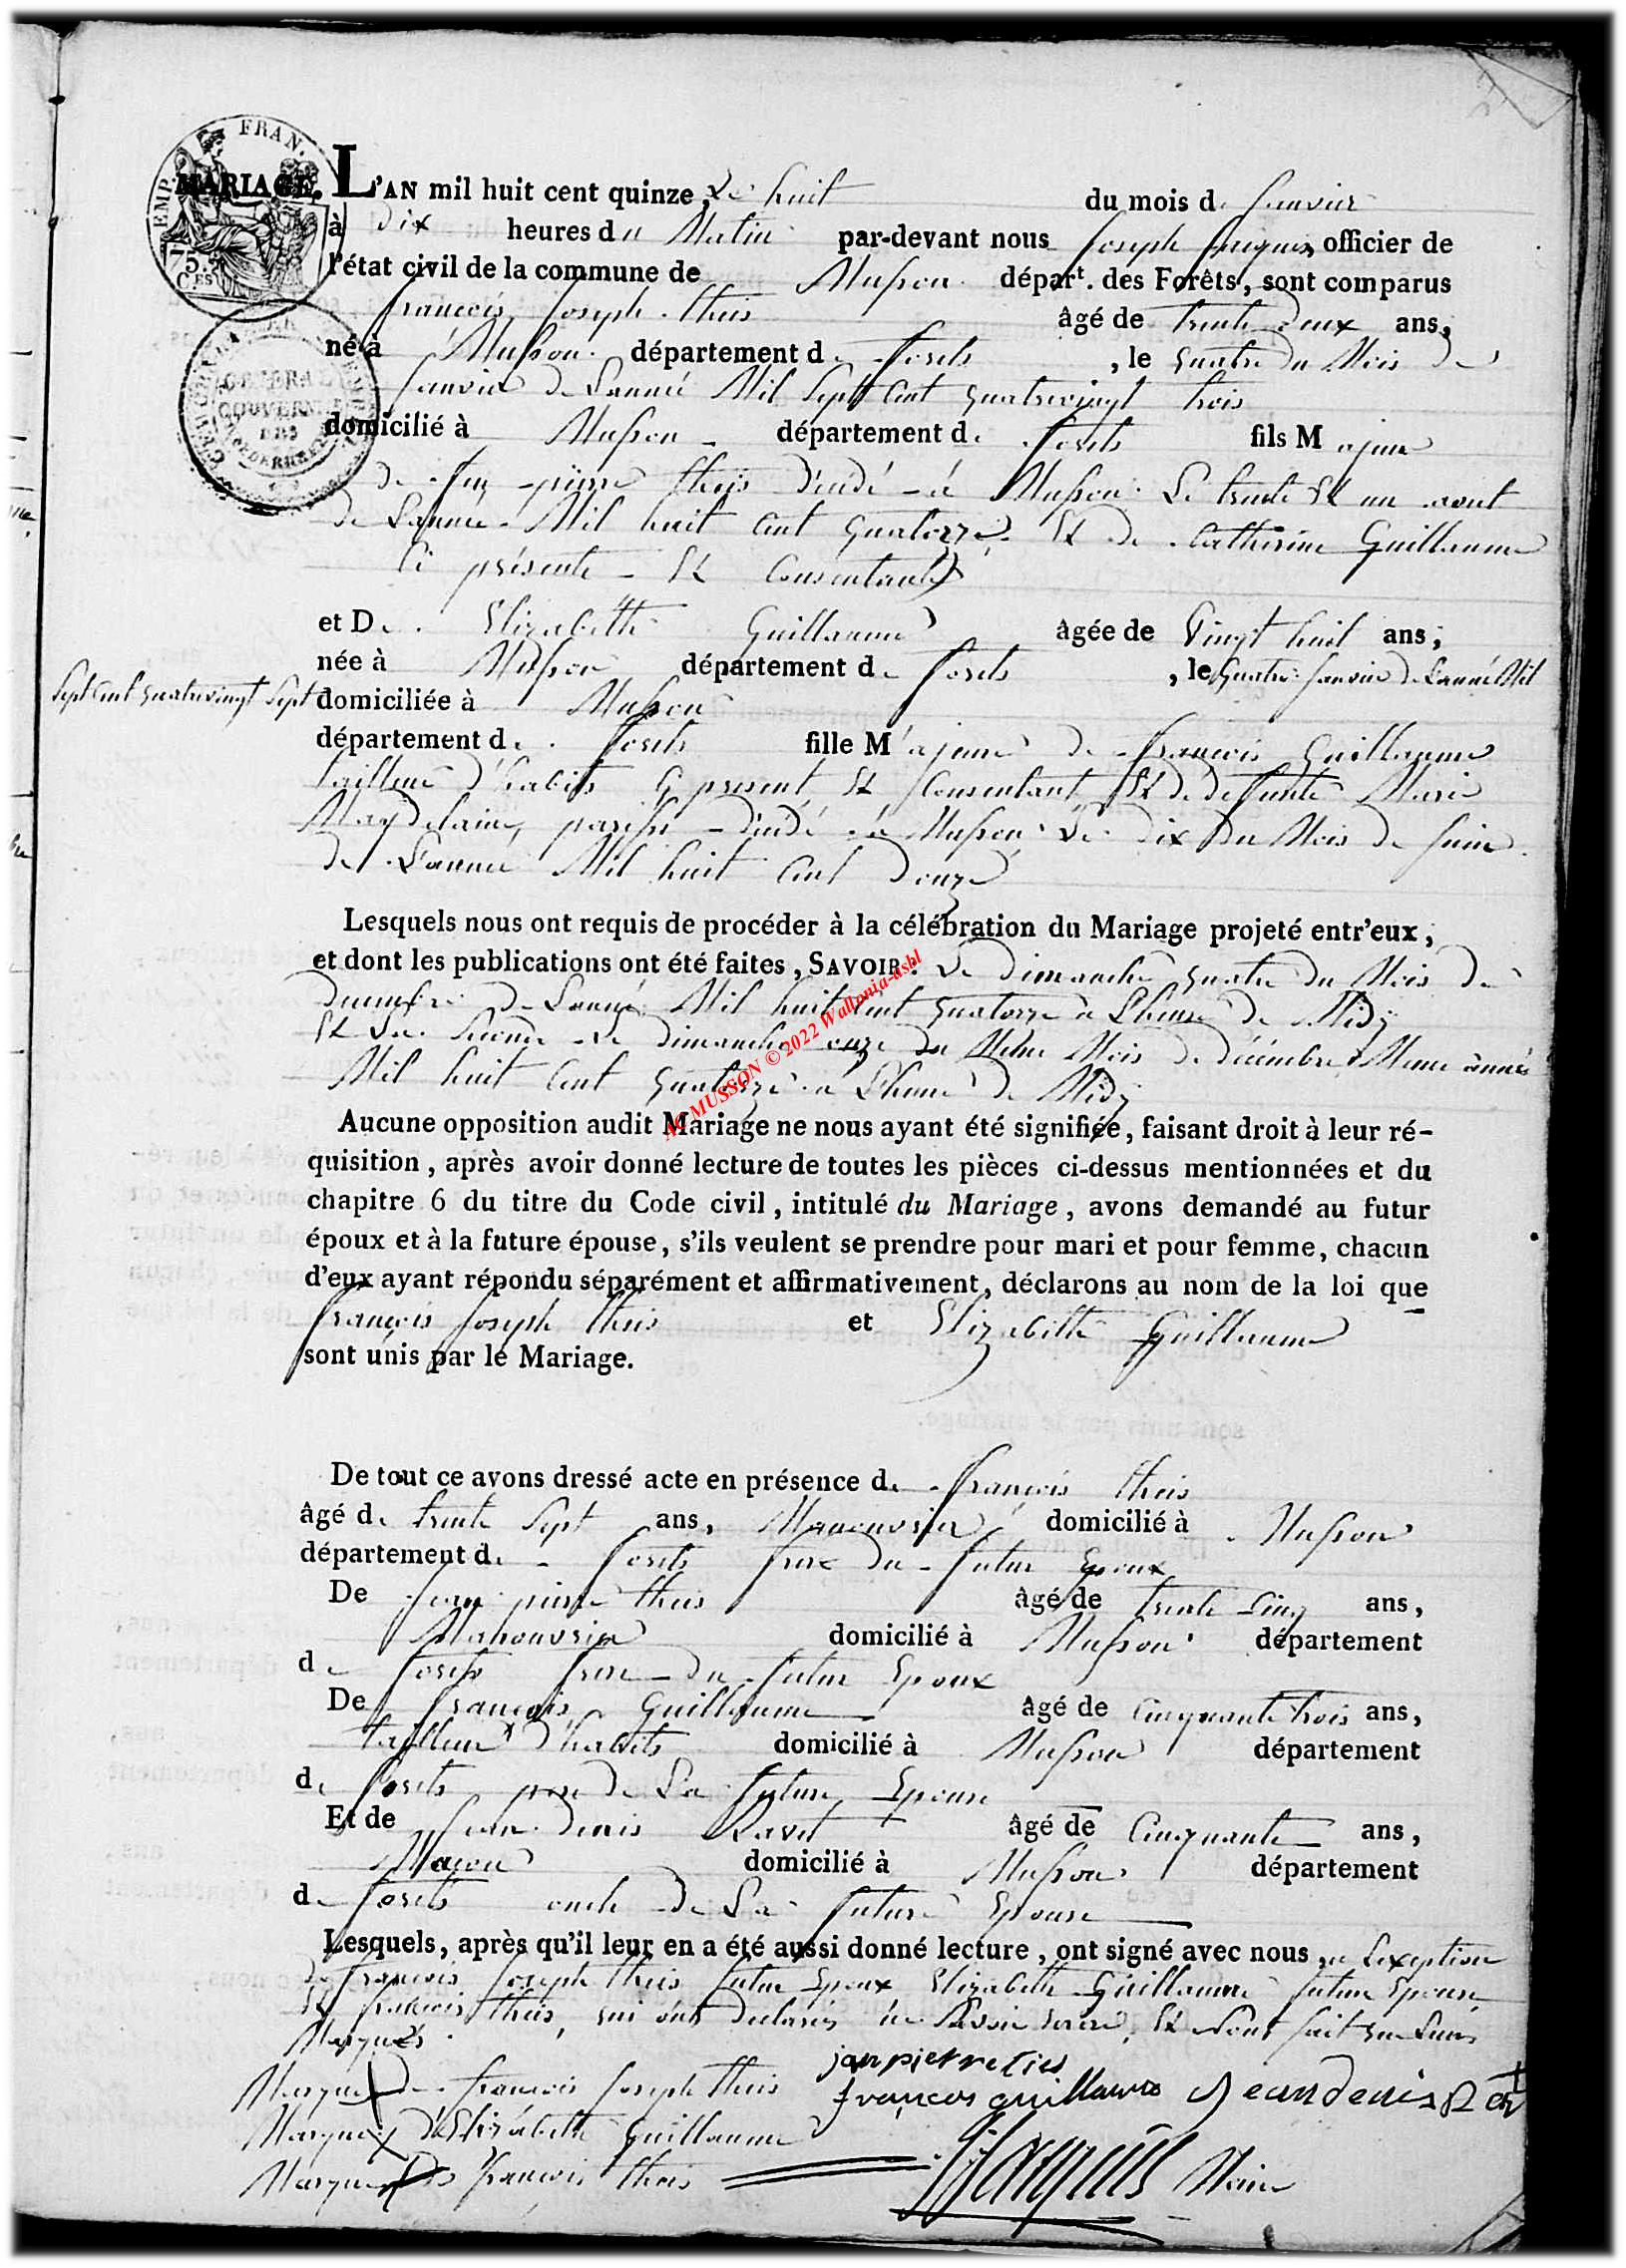 EMP. FRAN.
5
CES
GENERAL
GOUVERN
DES
MARIAGE. L'AN mil huit cent quinze, Le huit du mois de Janvier
à dix heures du Matin par-devant nous Joseph Jacquis officier de
l'état civil de la commune de Musson départ. des Forêts, sont comparus
François Joseph theis âgé de trente deux ans,
né à Musson département de forets, le quatre du Mois de
Janvier de L'année Mil Sept Cent quatrevingt trois
domicilié à Musson département de forets fils Majeur
de feu pierre theis décédé à Musson Le trente Et un aout
de L'année Mil huit Cent quatorze Et de Catherine Guillaume
Ci présente Et Consentante
et De Elizabethe Guillaume âgée de Vingt huit ans;
née à Musson département de forets, le quatre Janvier de L'année Mil
Sept Cent quatrevingt Sept domiciliée à Musson
département de forets fille Majeure de françois Guillaume
tailleur d'habits Cy present Et Consentant Et de defunte Marie
Magdelaine décédé à Musson Le dix Du Mois de Juin
de L'année Mil huit Cent douze
Lesquels nous ont requis de procéder à la célébration du Mariage projeté entr'eux,
et dont les publications ont été faites, SAVOIR: Le dimanche quatre du Mois de
decembre de L'année Mil huit Cent quatorze a L'heure de Midy
Et La Seconde Le dimanche onze du Même Mois de décembre Même année
Mil huit Cent quatorze a L'heure de Midy
AC MUSSON © 2022 Wallonia-asbl
Aucune opposition audit Mariage ne nous ayant été signifiée, faisant droit à leur ré-
quisition, après avoir donné lecture de toutes les pièces ci-dessus mentionnées et du
chapitre 6 du titre du Code civil, intitulé du Mariage, avons demandé au futur
époux et à la future épouse, s'ils veulent se prendre pour mari et pour femme, chacun
d'eux ayant répondu séparément et affirmativement, déclarons au nom de la loi que
françois Joseph theis et Elizabethe Guillaume
sont unis par le Mariage.
De tout ce avons dressé acte en présence de françois theis
âgé de trente Sept ans, Manouvrier domicilié à Musson
département de forets frere du futur Epoux
De Jean pierre theis âgé de trente Cinq ans,
Manouvrier domicilié à Musson département
de forets frere du futur Epoux
De françois Guillaume âgé de Cinquante trois ans,
tailleur d'habits domicilié à Musson département
de forets pere de La future Epouse
Et de Jean denis Ravet âgé de Cinquante ans,
Maçon domicilié à Musson département
de forets oncle de La future Epouse
Lesquels, après qu'il leur en a été aussi donné lecture, ont signé avec nous a L'exception
de françois Joseph theis futur Epoux Elizabethe Guillaume future Epouse
Et françois theis, qui ont declarés ne Savoir Ecrire, Et ont fait Leurs
Marques.
Marque de françois Joseph theis jan pierre ties
françois guillaume Jean denis
Marque d'Elizabethe Guillaume
Marque de françois theis Jacquis Maire